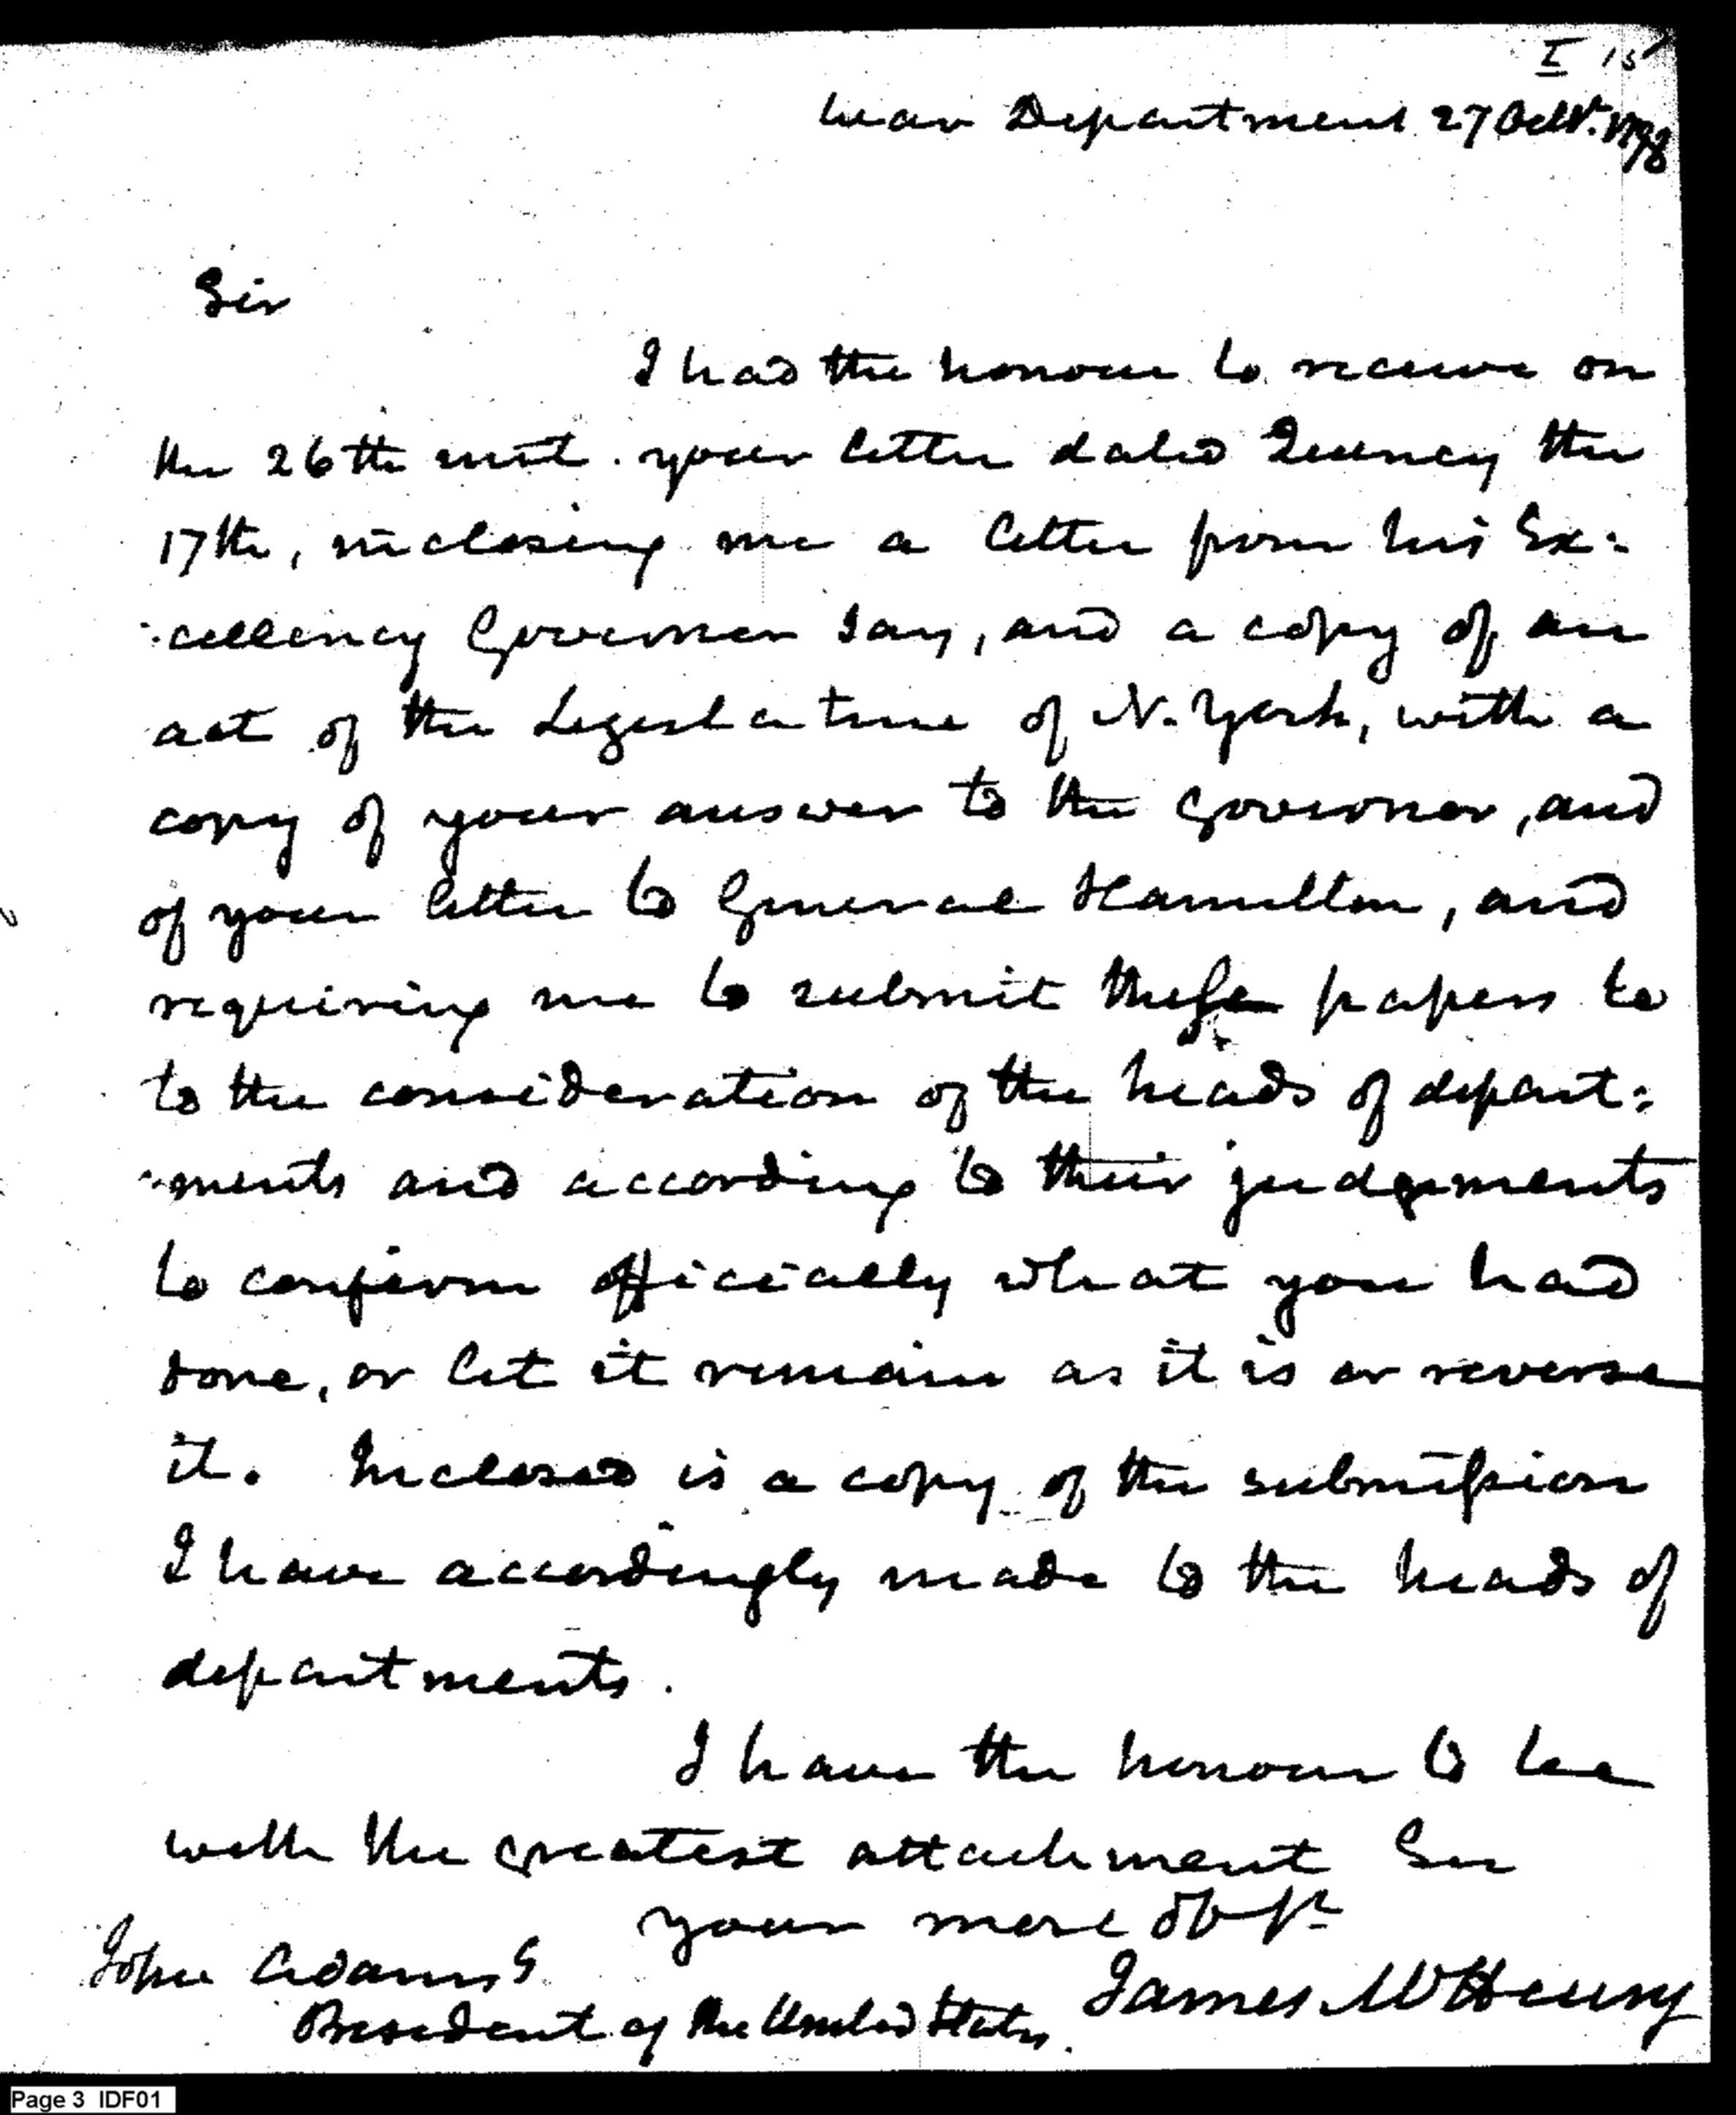 I 15
War Department 27 Octbr. 1798
Sir
I had the honour to receive on
the 26th inst. your letter dated Quincy the
17th, inclosing me a letter from his Ex=
=cellency Governor Jay, and a copy of an
act of the Legislature of N. York, with a
copy of your answer to the Governor, and
of your letter to General Hamilton, and
requiring me to submit these papers to
to the consideration of the heads of depart=
=ments and according to their judgements
to confirm officially what you had
done, or let it remain as it is or reverse
it. Inclosed is a copy of the submission
I have accordingly made to the heads of
departments.
I have the honour to be
with the greatest attachment Sir
your most obt
James McHenry
John Adams
President of the United States.
Page 3 IDF01